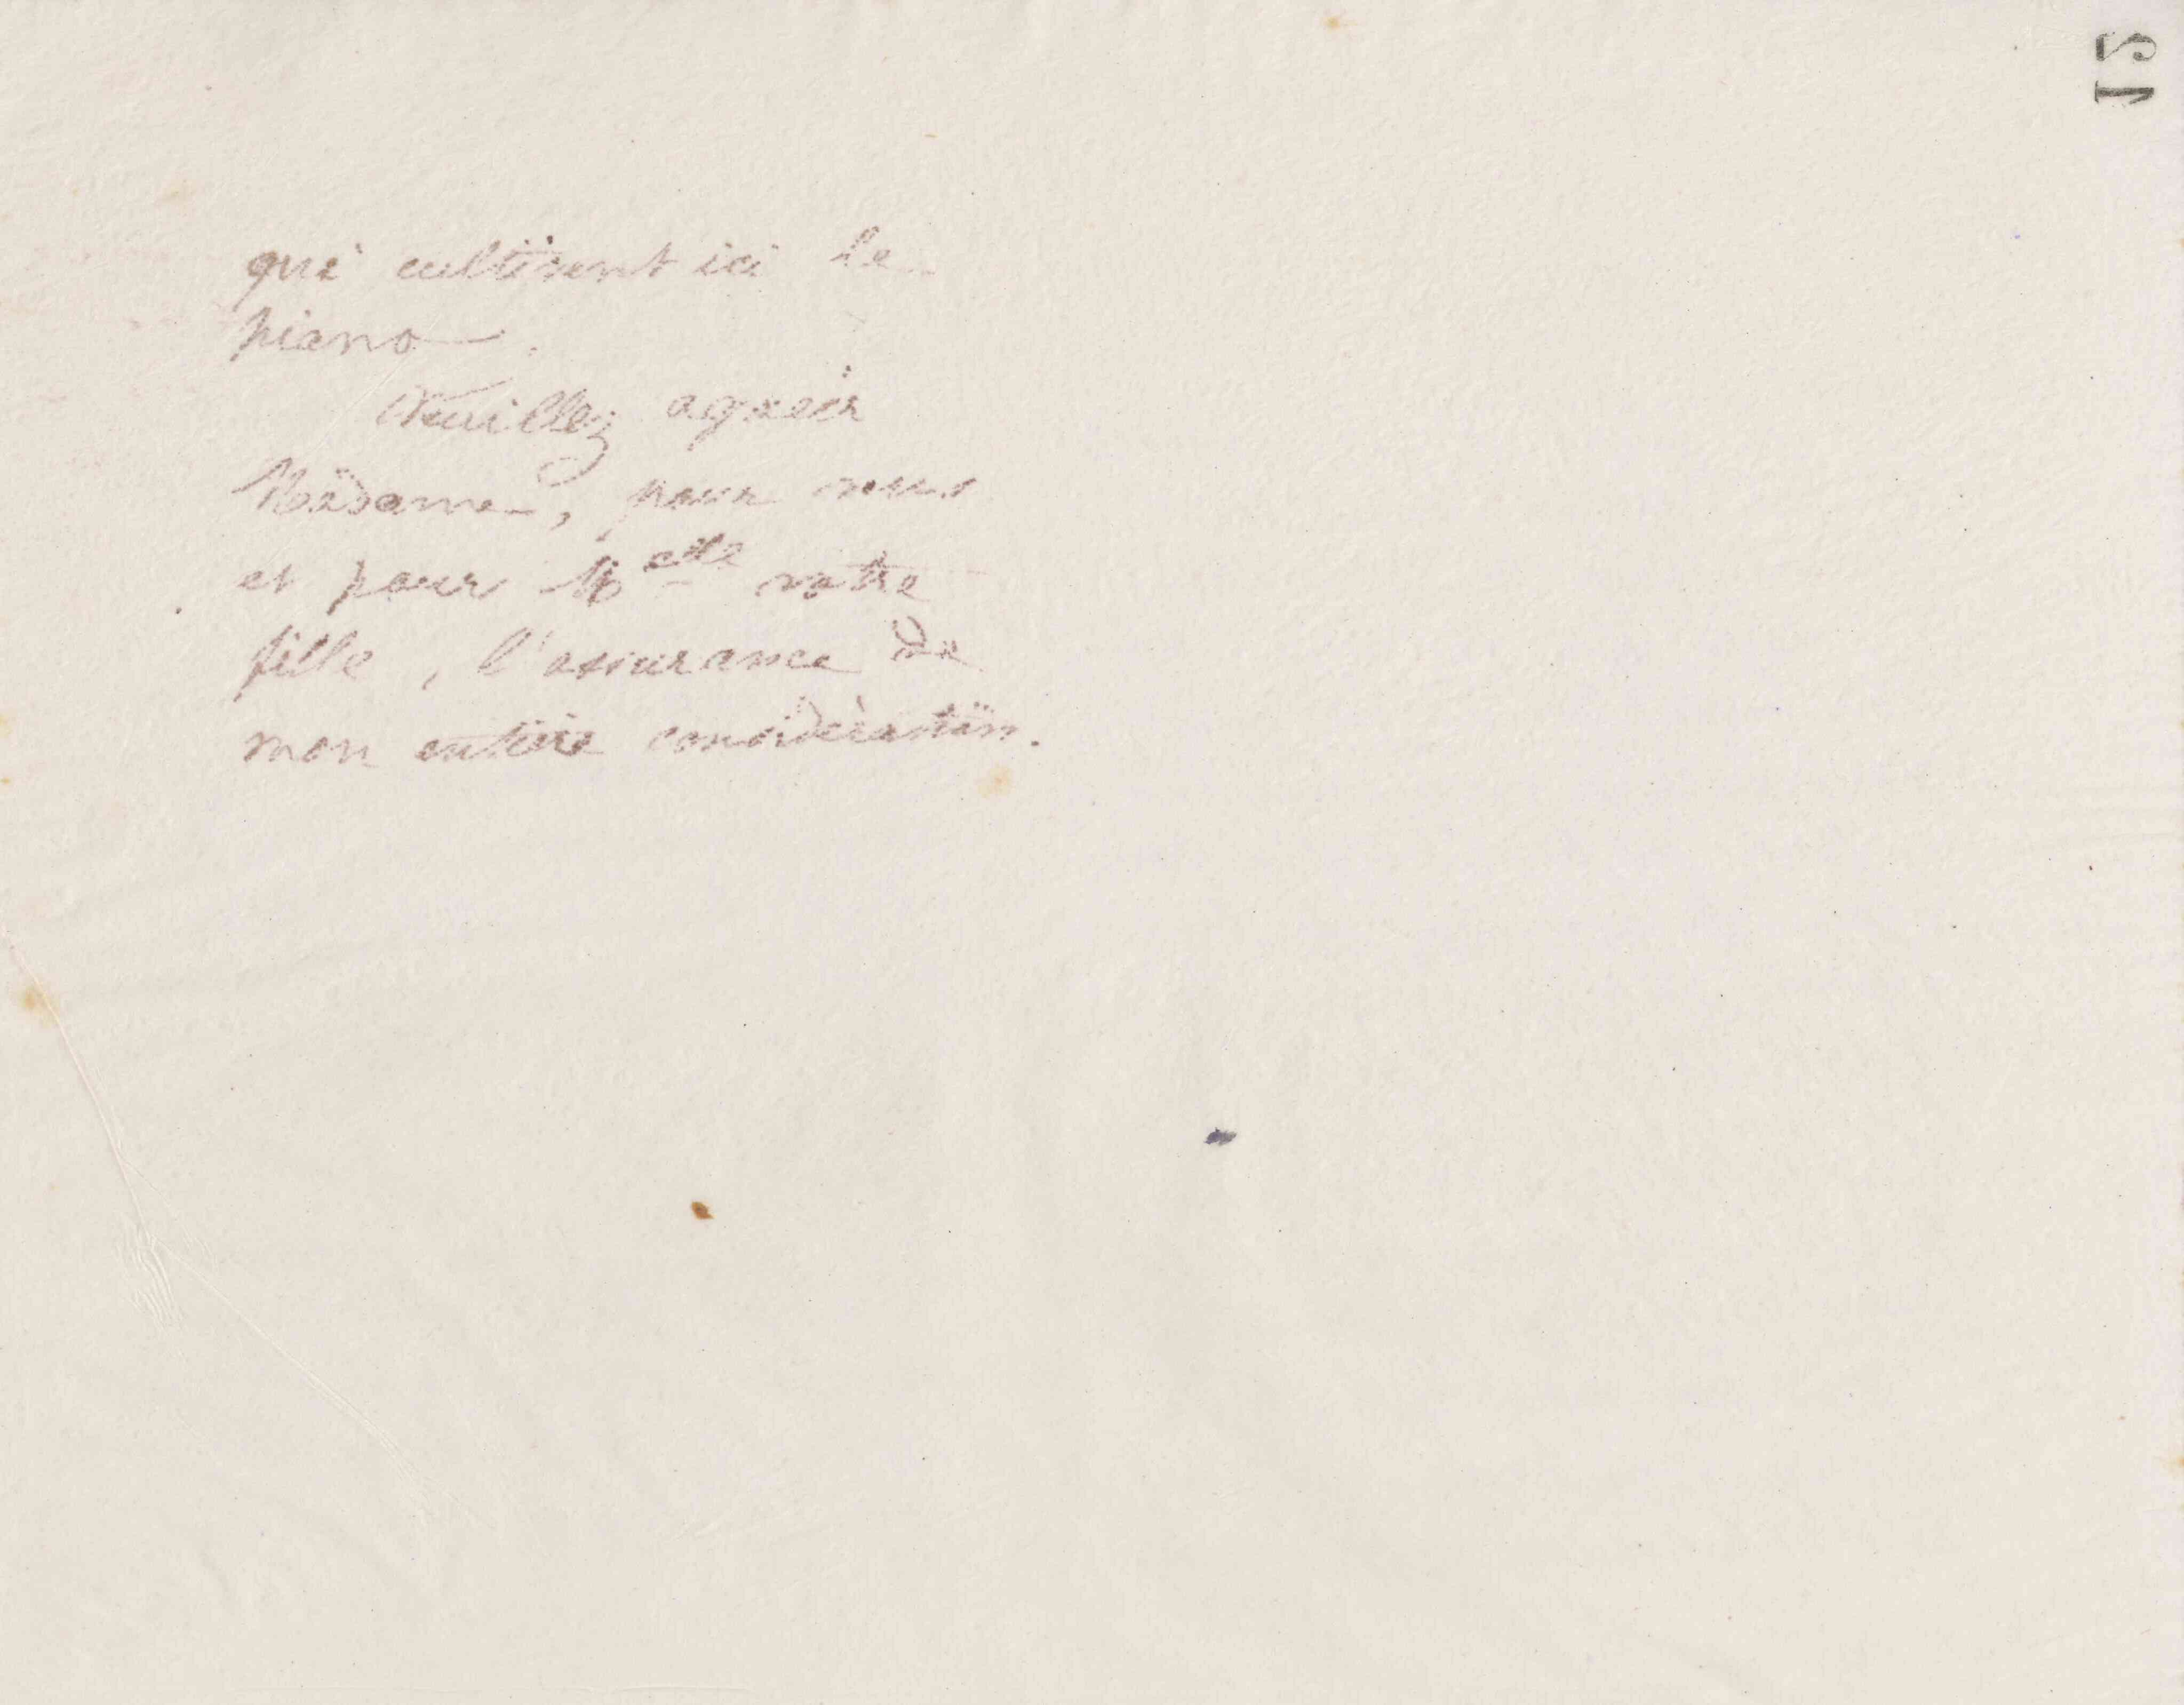 15
qui cultivent ici le
piano.
Veuillez agréer
Madame, pour vous
et pour Melle votre
fille, l'assurance de
mon entière considération.